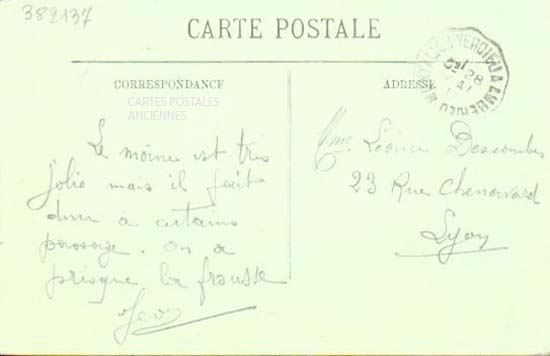 382137
CARTE POSTALE
CORRESPONDANCE
ADRESSE
CARTES POSTALES
ANCIENNES
Le moine est très
jolie mais il fait
dur à certains
passage. on a
presque la frousse
Mme Léonce Descombes
23 Rue Chenavard
Lyon